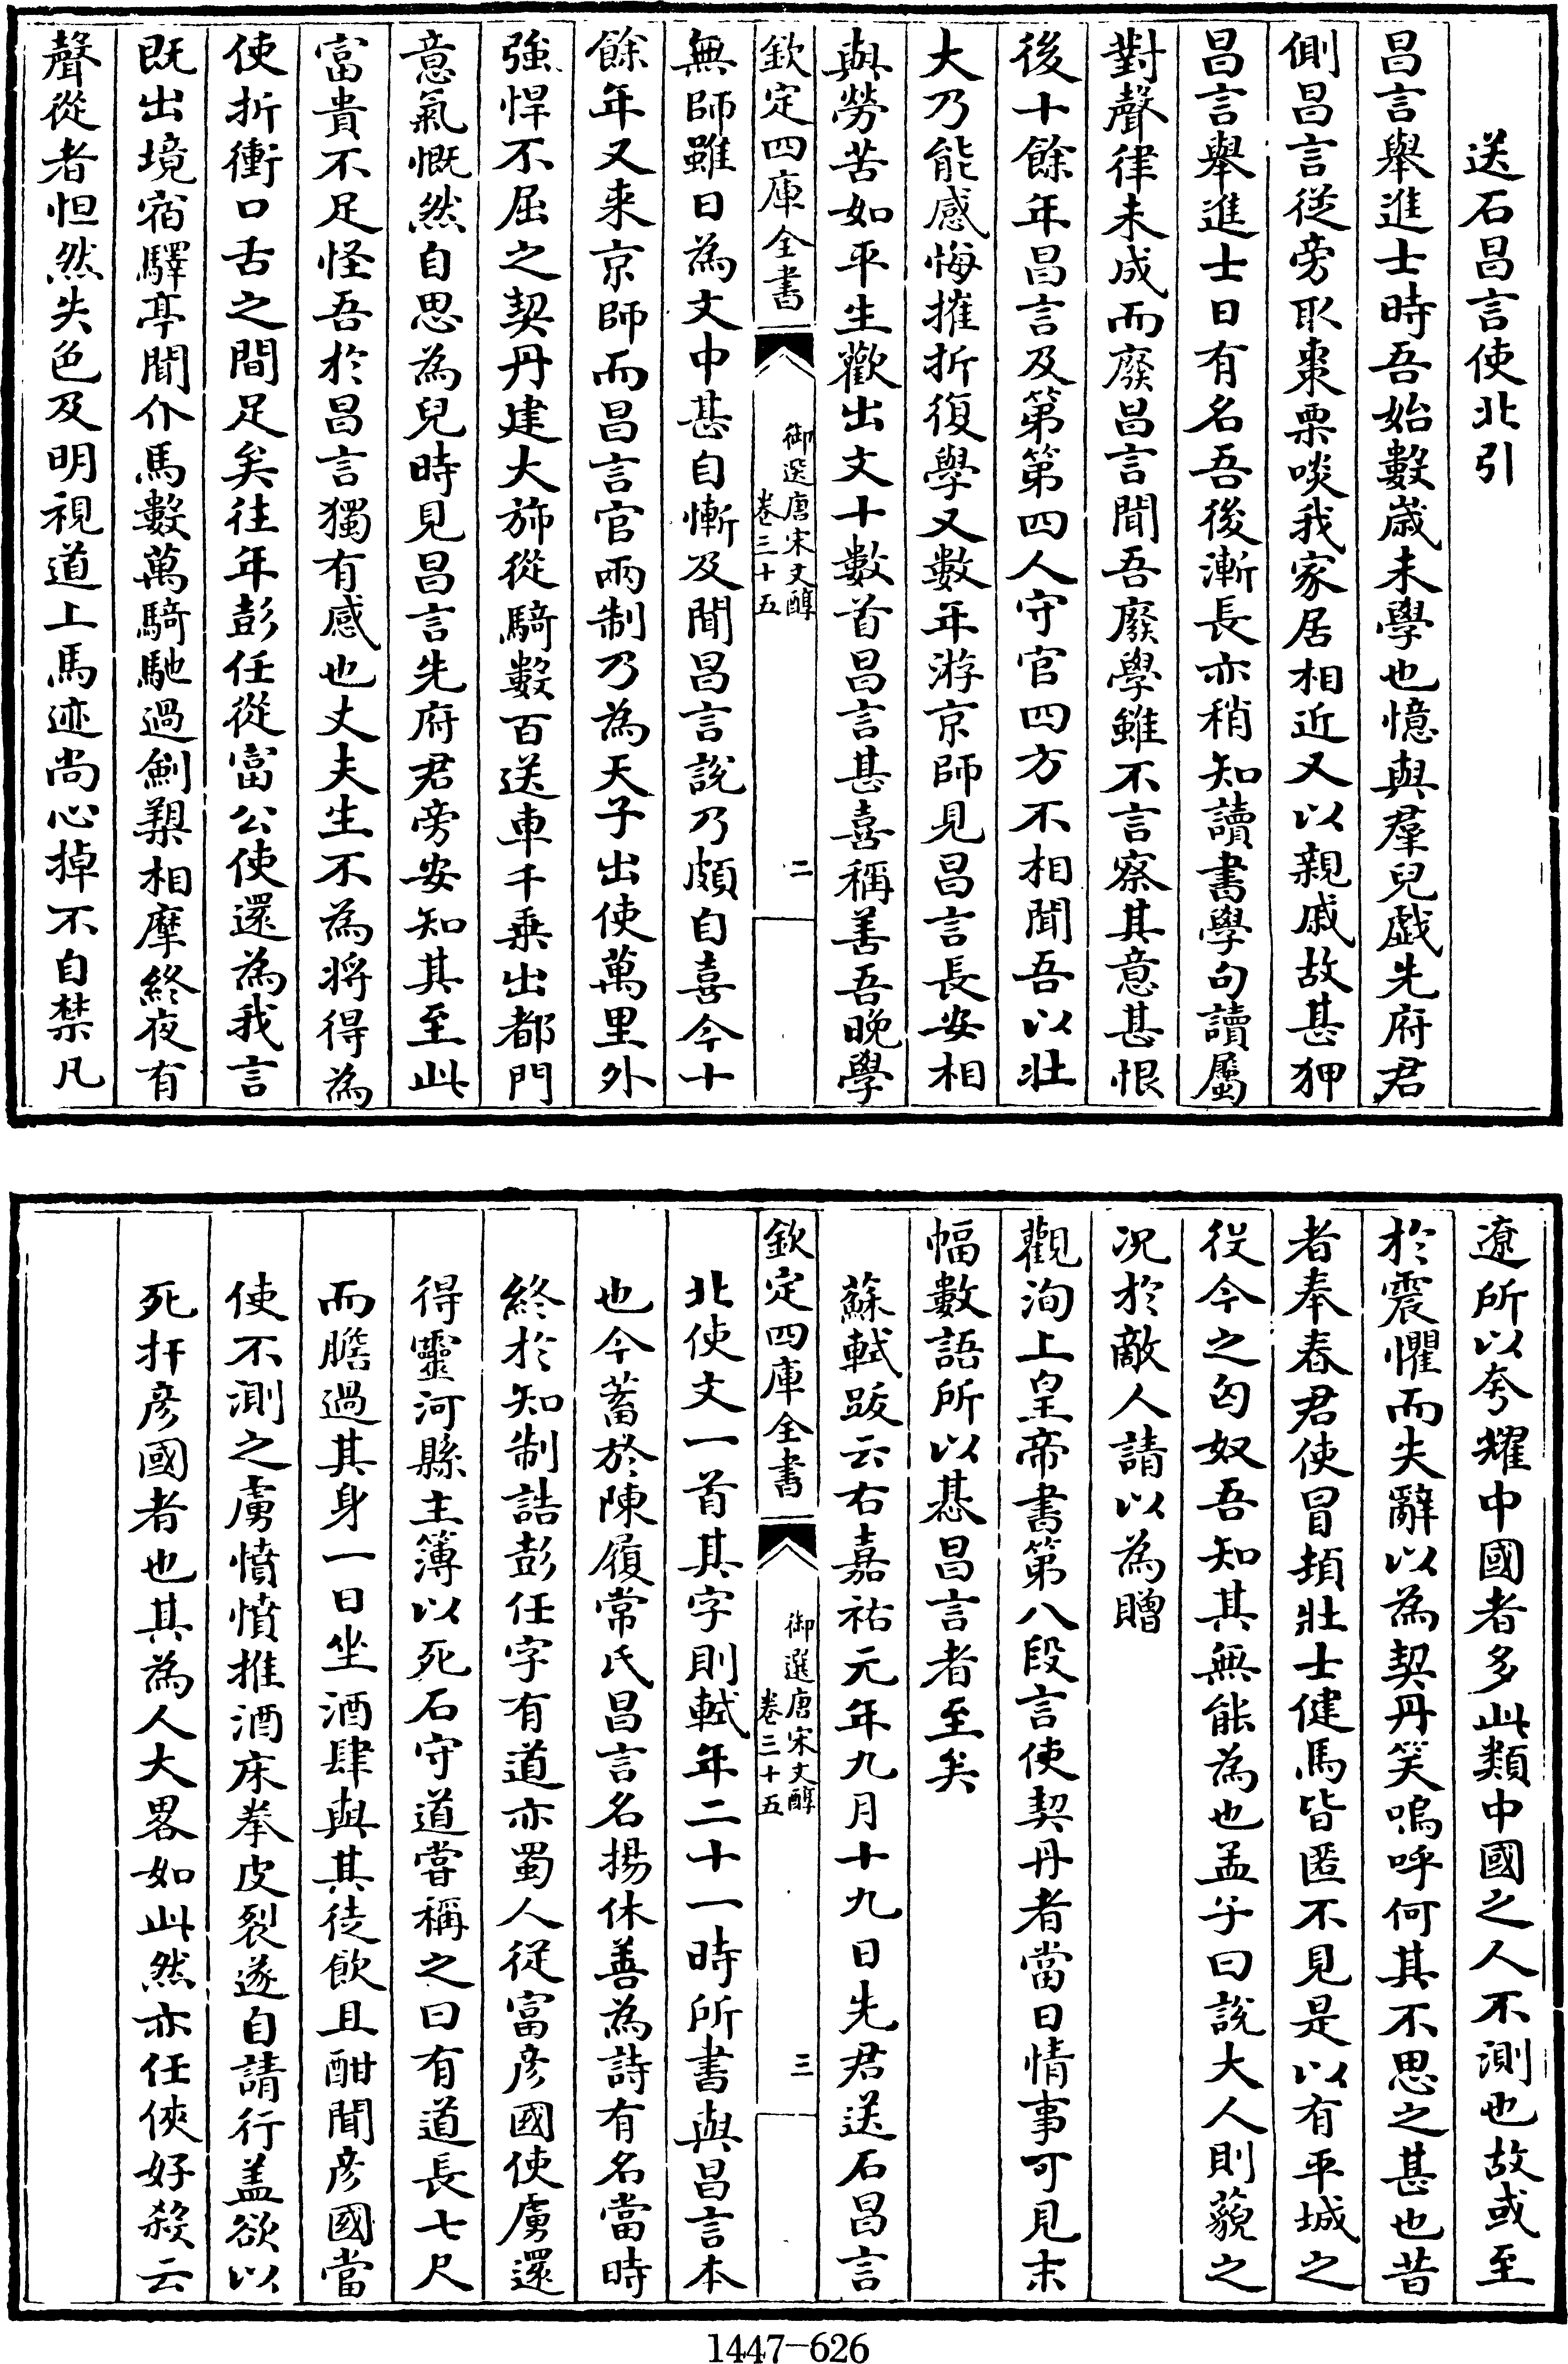 送石昌言使北引
昌言舉進士時吾始數歳未學也憶與羣兒戲先府君
側昌言從旁取棗栗啖我家居相近又以親戚故甚狎
昌言舉進士日有名吾後漸長亦稍知讀書學句讀屬
對聲律未成而廢昌言聞吾廢學雖不言察其意甚恨
後十餘年昌言及第第四人守官四方不相聞吾以壯
大乃能感悔摧折復學又數年游京師見昌言長安相
與勞苦如平生歡出文十數首昌言甚喜稱善吾晚學
欽定四庫全書
御選唐宋文醇
卷三十五
二
無師雖日為文中甚自慚及聞昌言說乃頗自喜今十
餘年又来京師而昌言官兩制乃為天子出使萬里外
強悍不屈之契丹建大斾從騎數百送車千乗出都門
意氣慨然自思為兒時見昌言先府君旁安知其至此
富貴不足怪吾於昌言獨有感也丈夫生不為將得為
使折衝口舌之間足矣往年彭任從富公使還為我言
既出境宿驛亭聞介馬數萬騎馳過劍槊相摩終夜有
聲從者怛然失色及明視道上馬迹尚心掉不自禁凡
遼所以夸耀中國者多此類中國之人不測也故或至
於震懼而失辭以為契丹笑嗚呼何其不思之甚也昔
者奉春君使冒頓壯士健馬皆匿不見是以有平城之
役今之匈奴吾知其無能為也孟子曰說大人則藐之
况於敵人請以為贈
觀洵上皇帝書第八段言使契丹者當日情事可見末
幅數語所以惎昌言者至矣
蘇軾跋云右嘉祐元年九月十九日先君送石昌言
欽定四庫全書
御選唐宋文醇
卷三十五
三
北使文一首其字則軾年二十一時所書與昌言本
也今蓄於陳履常氏昌言名揚休善為詩有名當時
終於知制誥彭任字有道亦蜀人從富彦國使虜還
得靈河縣主簿以死石守道嘗稱之曰有道長七尺
而膽過其身一日坐酒肆與其徒飲且酣聞彦國當
使不測之虜憤憤推酒床拳皮裂遂自請行盖欲以
死扞彦國者也其為人大畧如此然亦任俠好殺云
1447-626